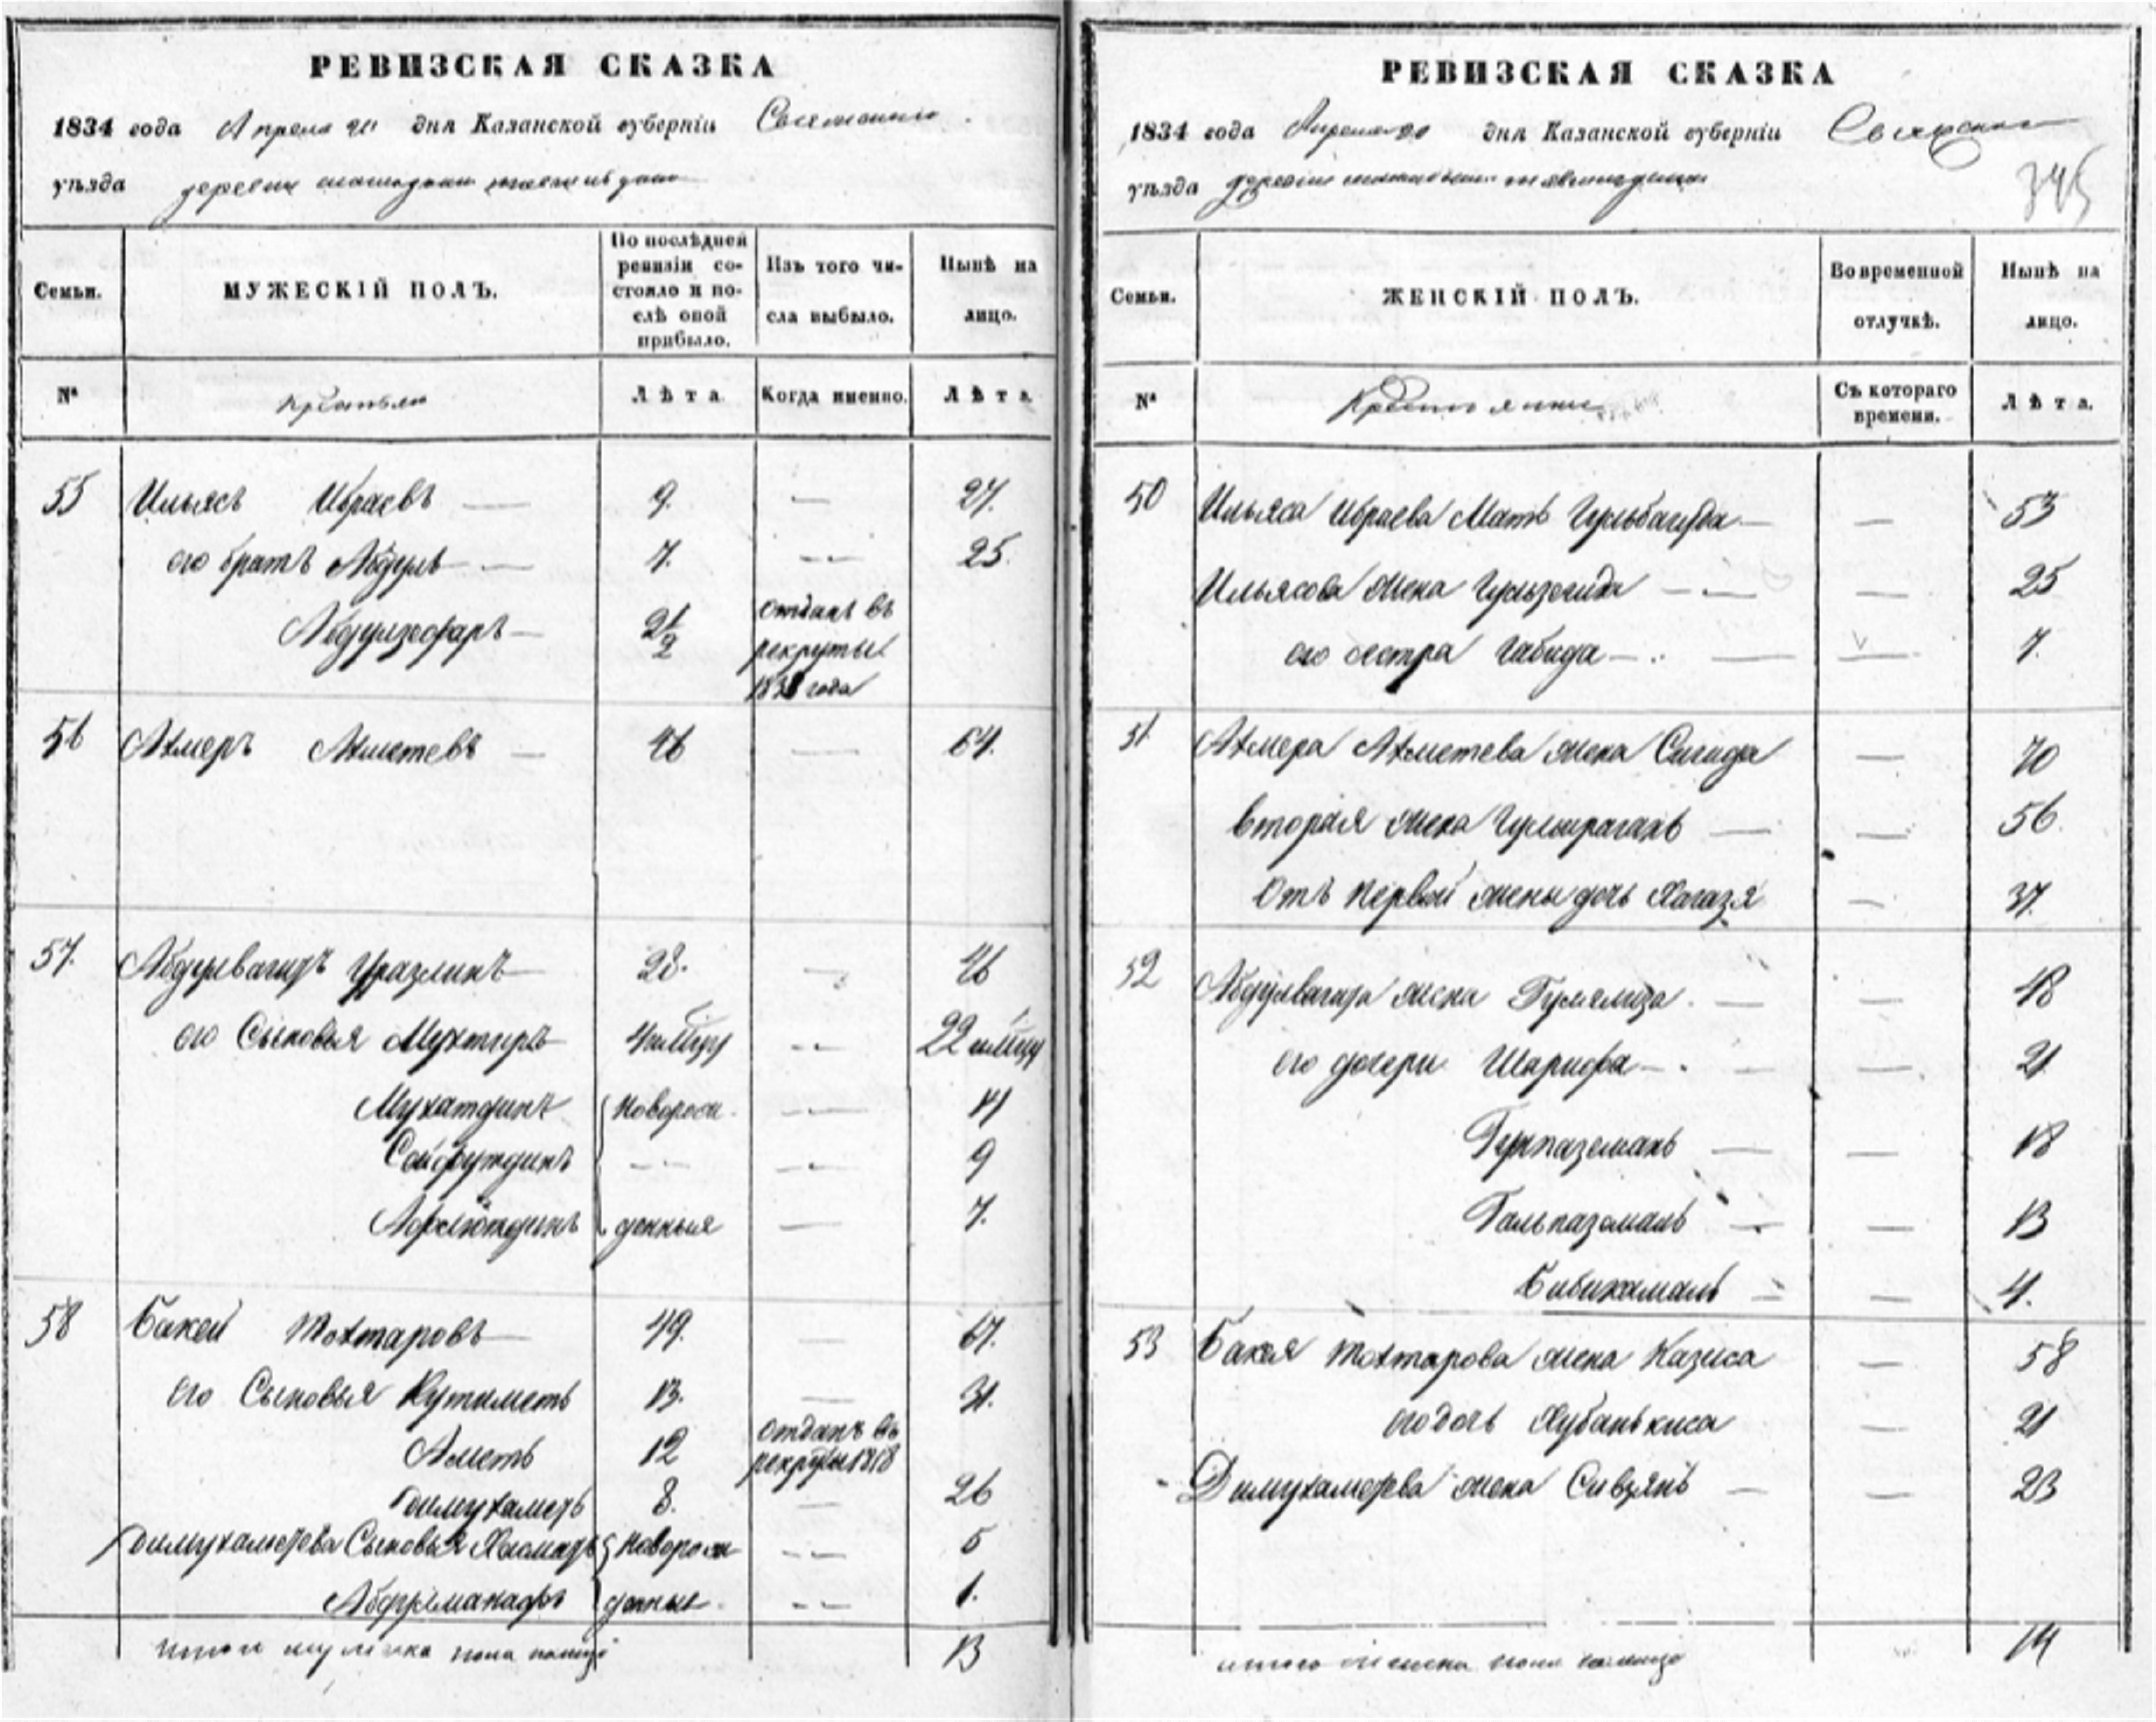 РЕВИЗСКАЯ СКАЗКА
1834 года Апреля 20 дня Казанской губерніи
уѣзда деревни
Семьи.
МУЖЕСКІЙ ПОЛЪ.
По послѣдней ревизіи состояло и послѣ оной прибыло.
Изъ того числа выбыло.
Нынѣ на лицо.
№ Крестьяне Лѣта. Когда именно. Лѣта.
55 Ильясъ Ибраевъ — 9. — 27.
его братъ Абдулъ — 7. — 25.
Абдулгофаръ — 2½ Отданъ въ рекруты года
56 Ахмеръ Ахметевъ — 46 — 64.
57. Абдулвагидъ Уразлинъ — 28. — 46
его Сыновья Мухтиръ 4 — 22
Мухатдинъ новорож- — 14
Сайфутдинъ — — 9
денныя — 7.
58 Бакей Тохтаровъ — 49. — 67.
его Сыновья Кутлиметь 13. — 31.
Аметь 12 Отданъ въ рекруты 1818
Димухаметь 8. — 26
Димухаметева Сыновья новорож — 5
денные — 1.
итого мужеска пола налицо 13
РЕВИЗСКАЯ СКАЗКА
1834 года Апреля 20 дня Казанской губерніи
уѣзда деревни
345
Семьи.
ЖЕНСКІЙ ПОЛЪ.
Во временной отлучкѣ.
Нынѣ на лицо.
№ Крестьянки Съ котораго времени. Лѣта.
50 Ильяса Ибраева Мать Гульбагида — — 53
Ильясова жена — — 25
его сестра Габида — — 7.
51. Ахмера Ахметева жена Сагида — 70
вторая жена — — 56
Отъ первой жены дочь — 37.
52 Абдулвагида жена — — 48
его дочери Шарифа — — 21
— — 18
— — 13
Бибикамаль — — 4.
53 Бакея Тохтарова жена Казиса — 58
его дочь Хубанькиса — 21
Димухаметева жена — — 23
итого женска пола налицо 14